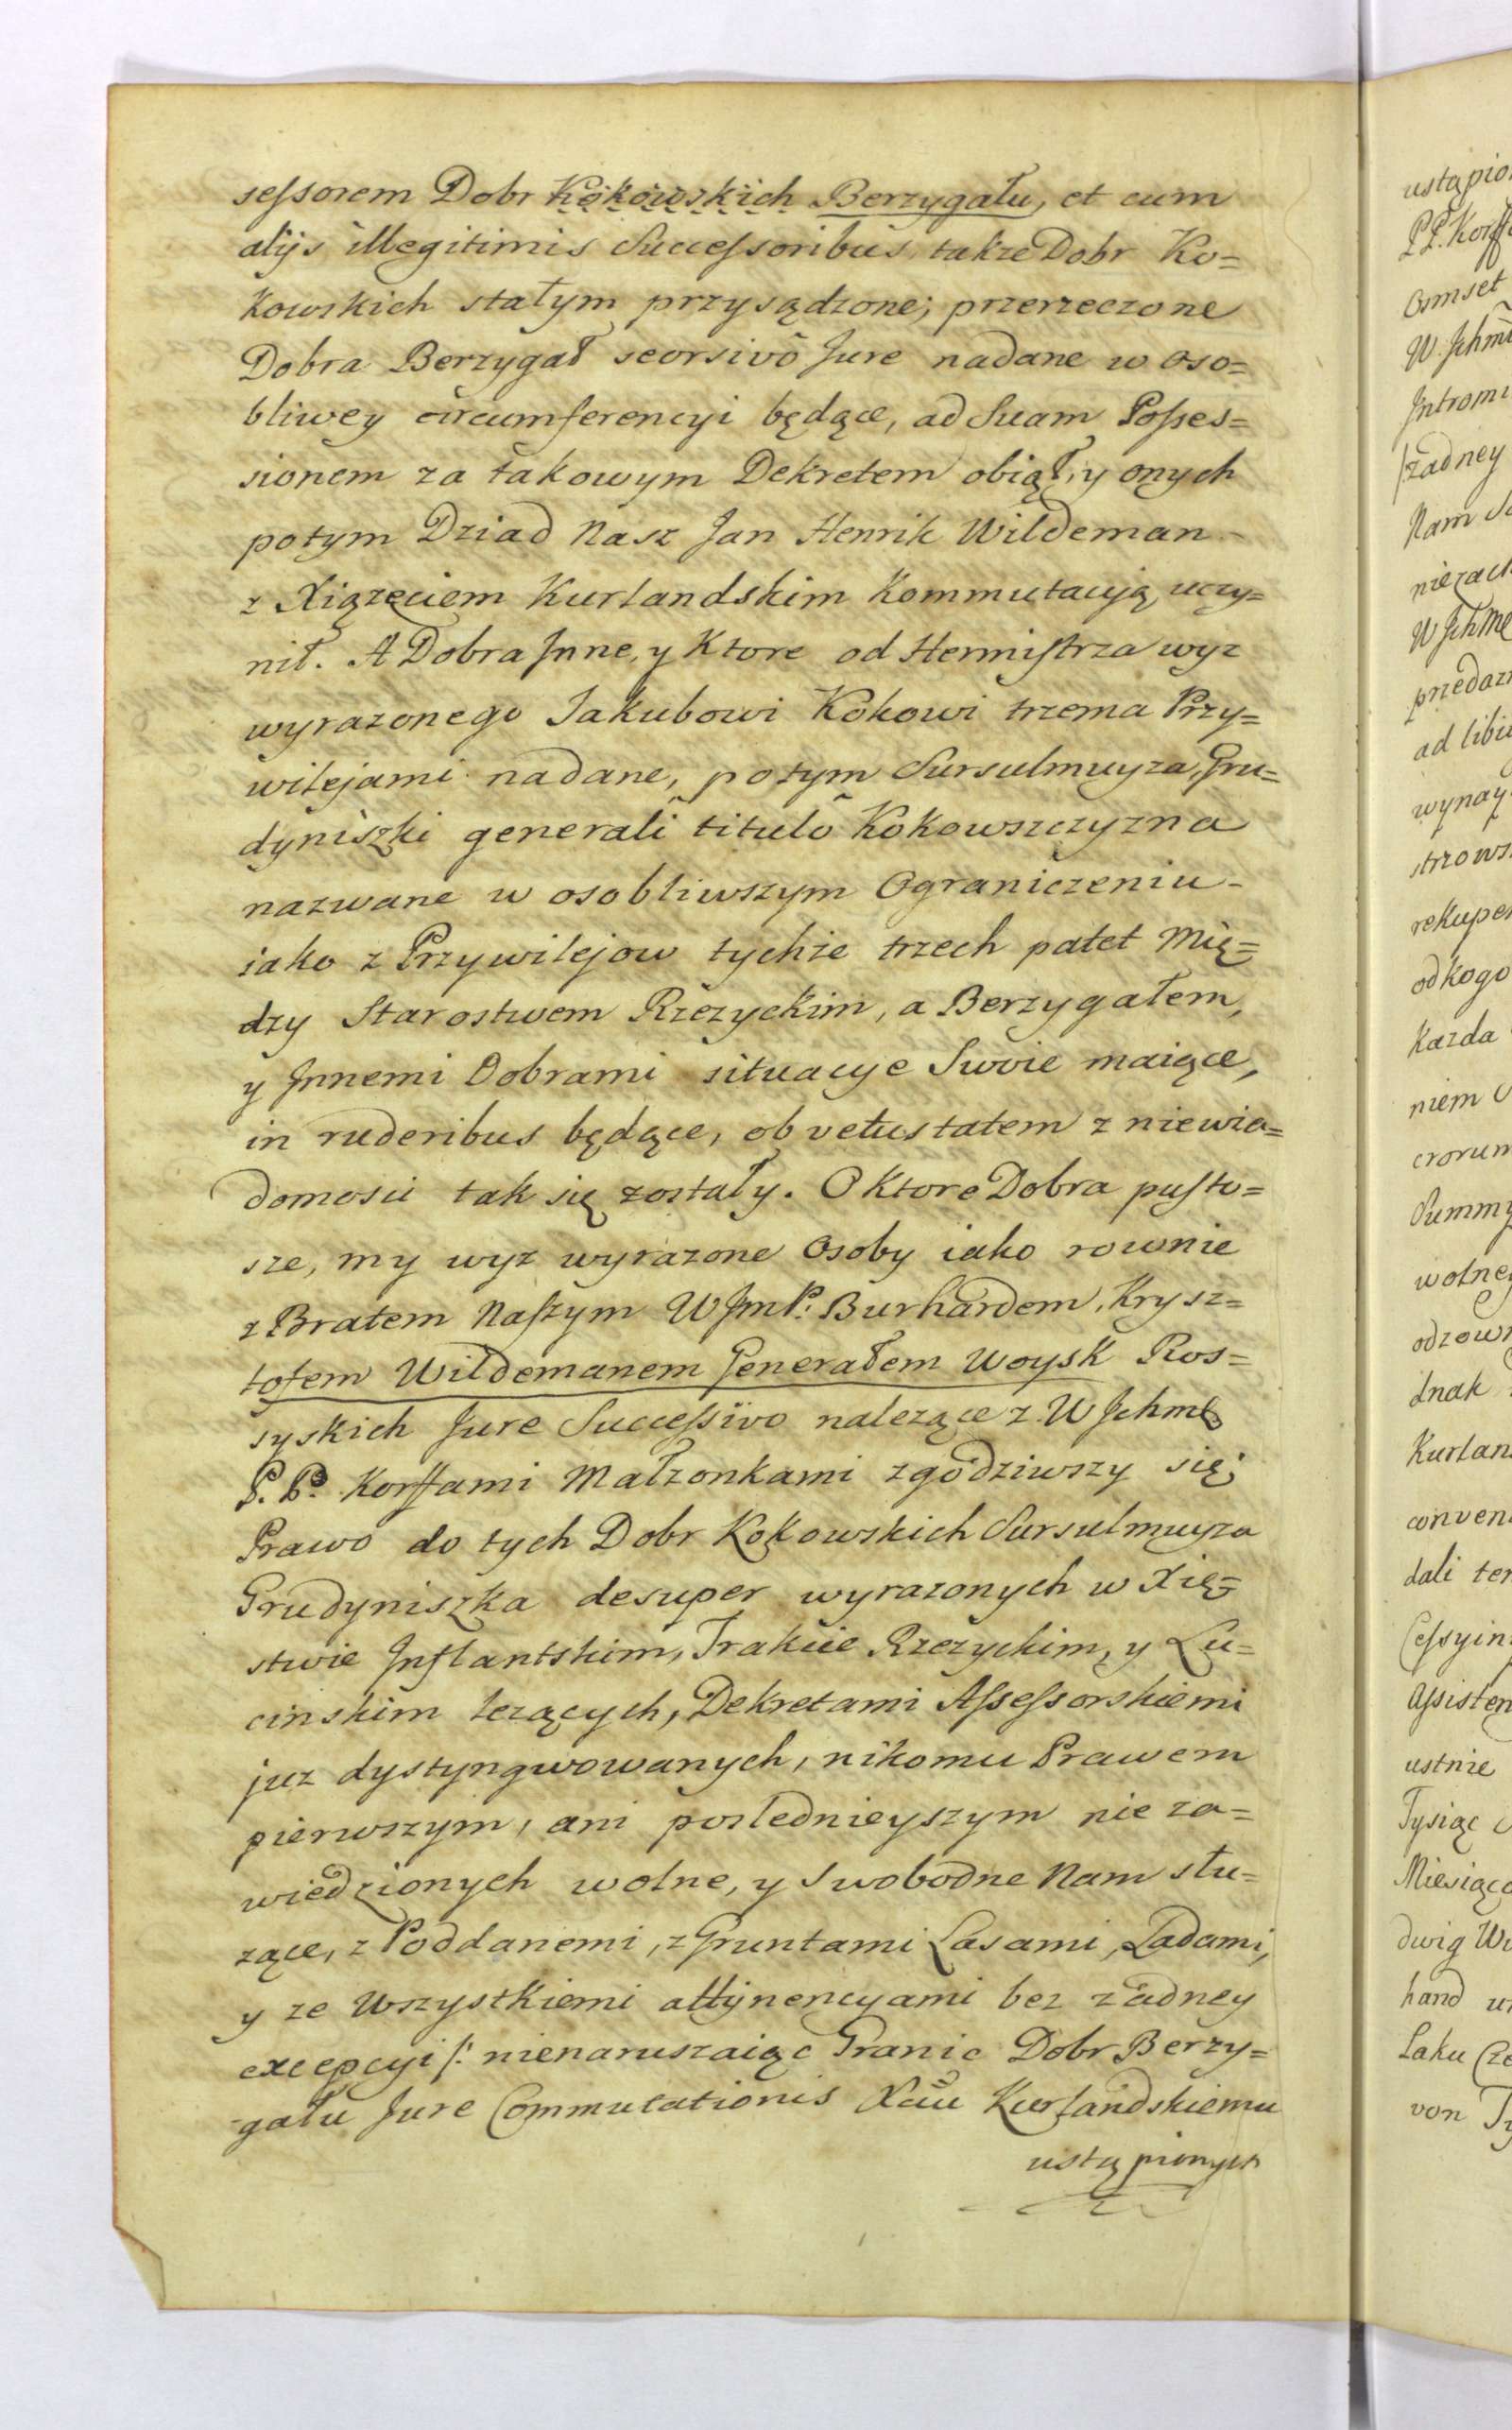 sessorem Dobr Kokowskich Berzygału, et cum
alijs illegitimis Successoribus takze Dobr Ko=
kowskich stałym przysądzone; przerzeczone
Dobra Berzygał seorsivô Jure nadane w oso=
bliwey circumferencyi będące, ad Suam Posses=
sionem za takowym Dekretem obiął, y onych
potym Dziad Nasz Jan Henrik Wildeman
z Xiązęciem Kurlandskim Kommutacyją uczy=
nił. A Dobra Jnne, y Ktore od Hermistrza wyz
wyrazonego Jakubowi Kokowi trzema Przy=
wilejami nadane, potym Sursulmuyza, Gru=
dyniszki generali titulô Kokowszczyzna
nazwane w osobliwszym Ograniczeniu
iako z Przywilejow tychze trzech patet Mię=
dzy Starostwem Rzezyckim, a Berzygałem,
y Jnnemi Dobrami situacye Swoie maiące,
in ruderibus będące, ob vetustatem z niewia=
domosci tak się zostały. O Ktore Dobra pusto=
sze, my wyz wyrazone Osoby iako rownie
z Bratem Naszym WJmP. Burhardem, Krysz=
tofem Wildemanem Generałem Woysk Ros=
syskich Jure Successivo nalezące z WJchmć
P.P. Korffami Małzonkami zgodziwszy się
Prawo do tych Dobr Kokowskich Sursulmuyza
Grudyniszka desuper wyrazonych w Xię=
stwie Jnflantskim, Trakcie Rzezyckim, y Lu=
cinskim lezących, Dekretami Assessorskiemi
juz dystyngwowanych, nikomu Prawem
pierwszym, ani poslednieyszym nie za=
wiedzionych wolne, y Swobodne Nam słu=
zące, z Poddanemi, z Gruntami Lasami, Ladami,
y ze Wszystkiemi attynencyami bez zadney
excepcyi /: nienaruszaiąc Granic Dobr Berzy=
gału Jure Commutationis Xciu Kurlandskiemu
ustąpionych
ustąpio
P.P. Korff
Osmset
W. Jchm
Jntromi
zadney
Nam
W Jchm
przedaz
ad libi
wynay
strzows
rekuper
od kogo
Kazda
niem
crorum
Summy
wolne
odzow
dnak
Kurlan
conven
dali ter
Cessyin
Assisten
ustnie
Tysiąc
Miesiąca
dwig Wi
hand
Laku
von